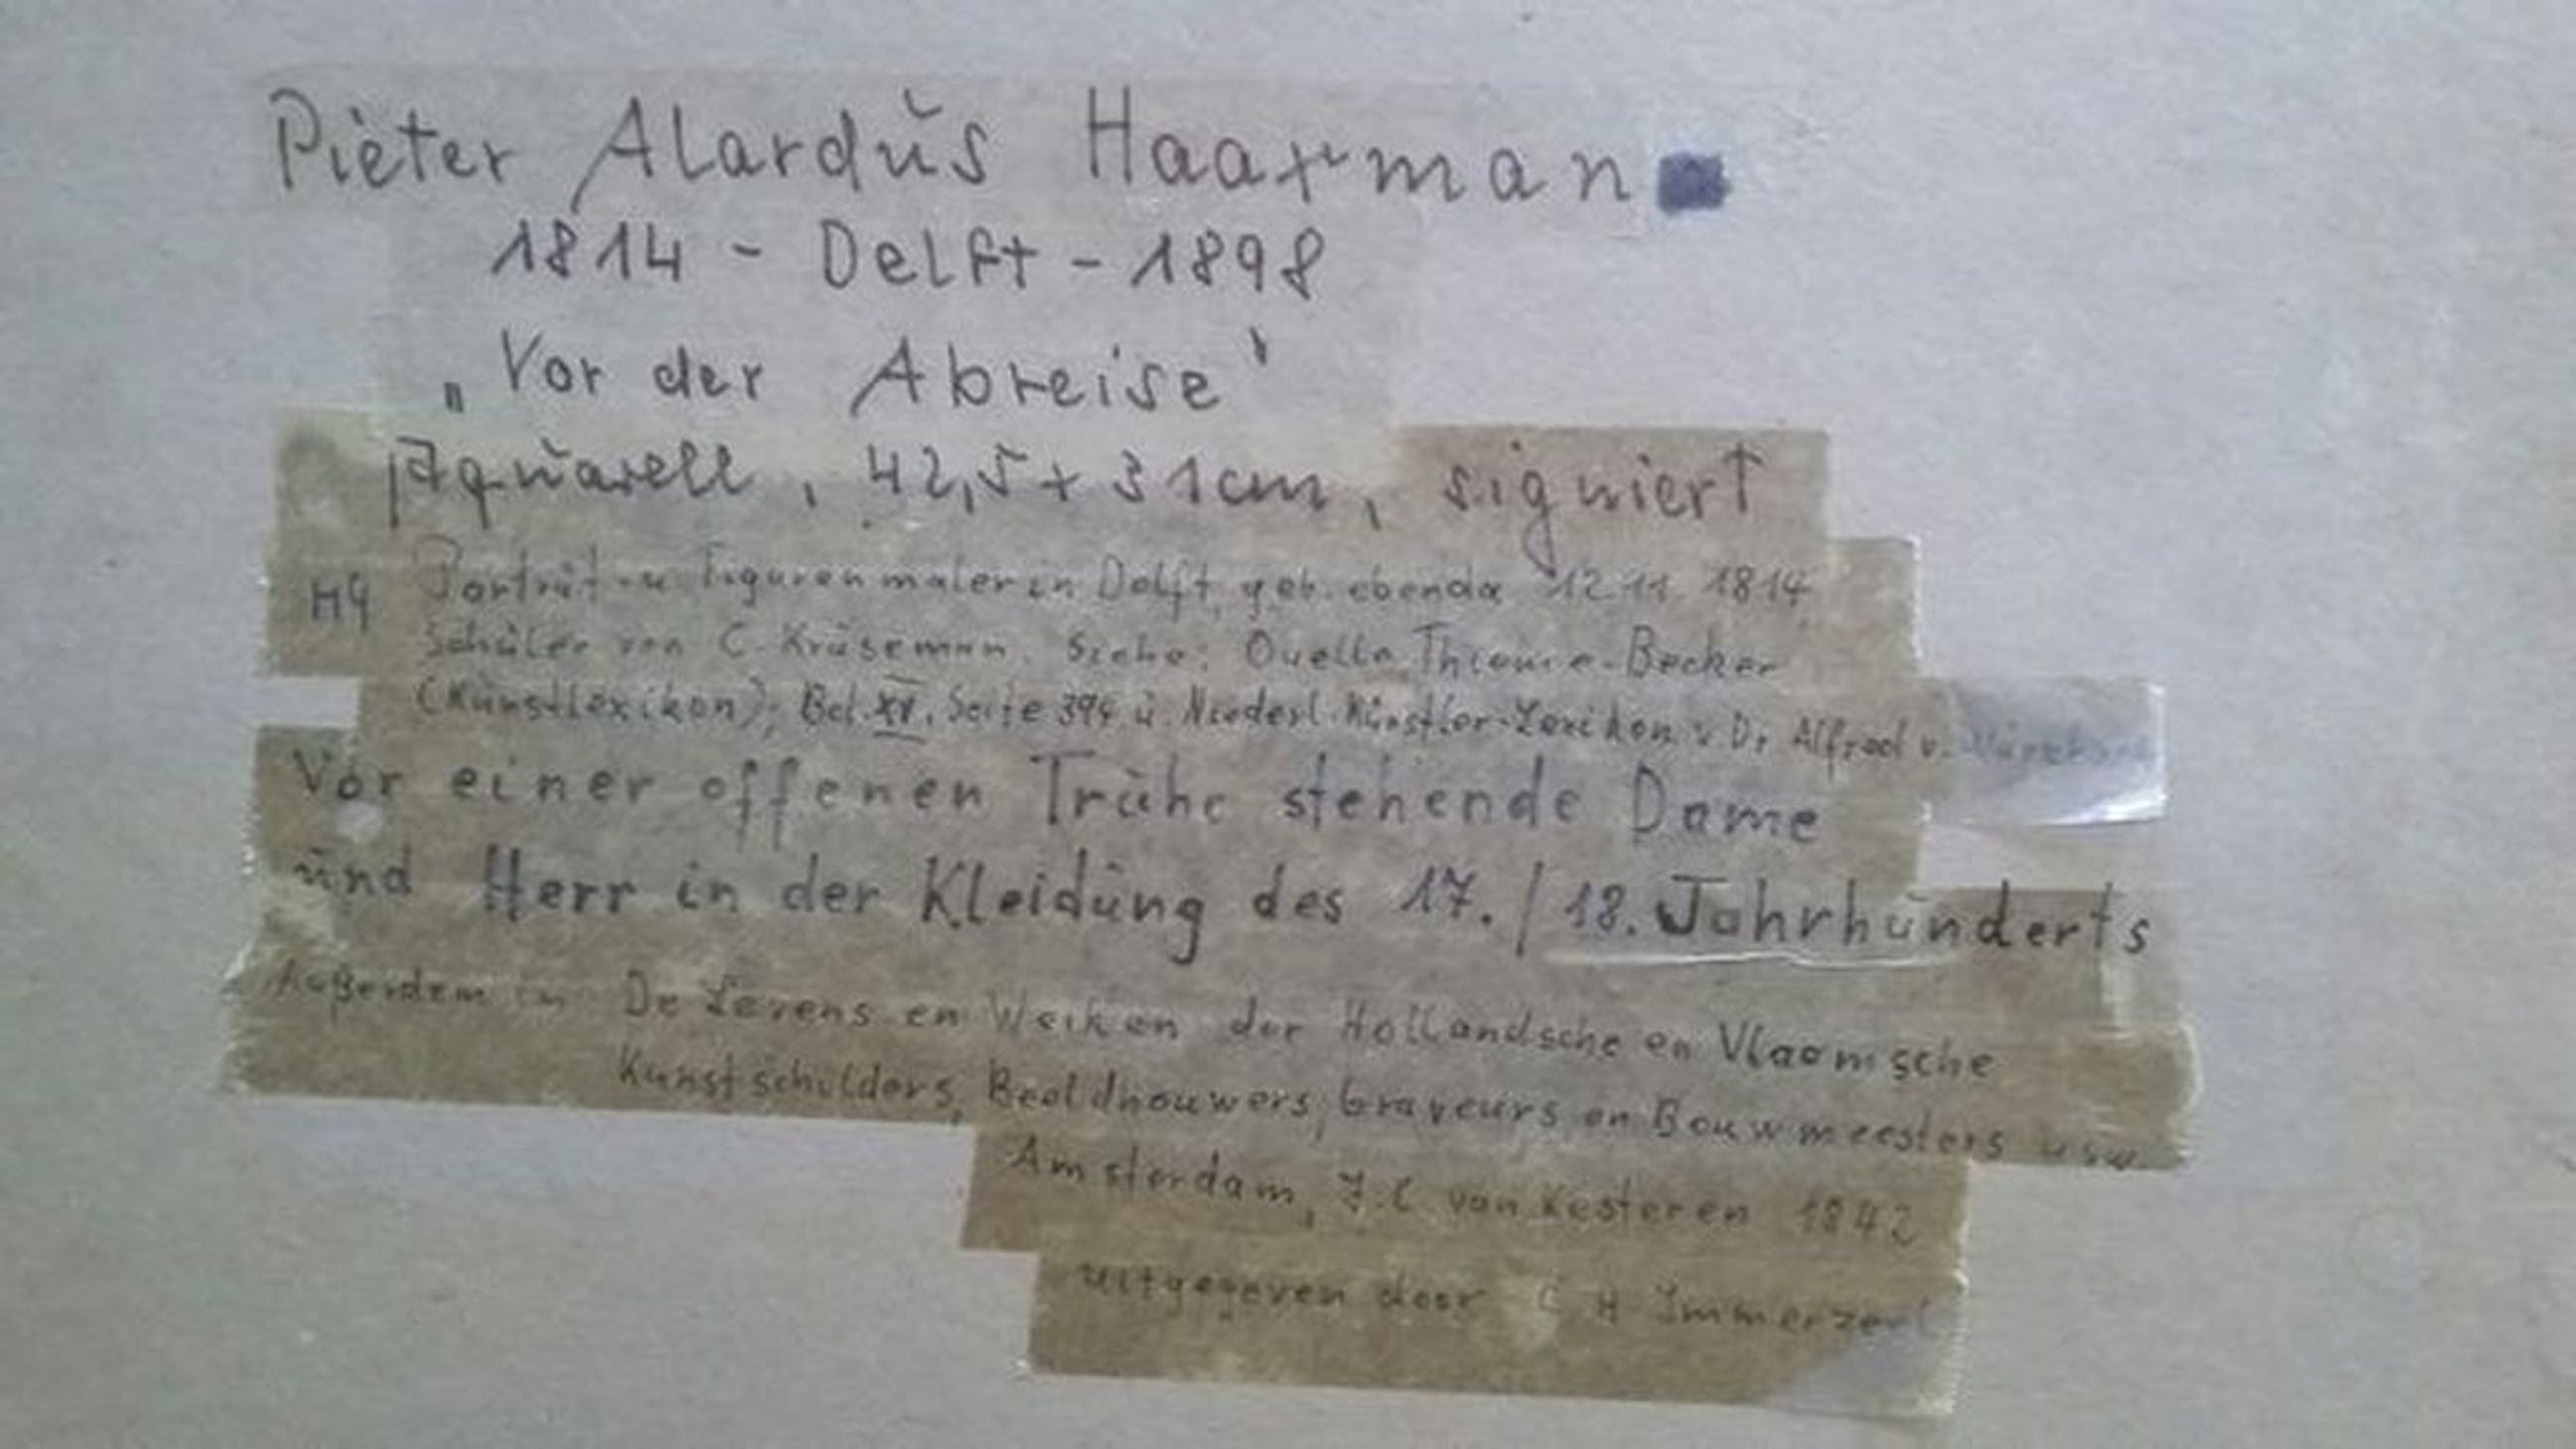 Pieter Alardus Haaxman
1814 - Delft - 1898
„Vor der Abreise“
Aquarell, 42,5 x 31cm, signiert
H4 Porträt- u. Figurenmaler in Delft, geb. ebenda 12.11.1814,
Schüler von C. Kruseman. Siehe: Quelle Thieme-Becker
(Kunstlexikon), Bd. XV, Seite 394 u. Niederl. Künstler-Lexikon v. Dr. Alfred v.
Vor einer offenen Truhe stehende Dame
und Herr in der Kleidung des 17. / 18. Jahrhunderts
Außerdem in De Levens en Werken der Hollandsche en Vlaamsche
Kunstschilders, Beeldhouwers, Graveurs en Bouwmeesters usw.
Amsterdam, J.C. van Kesteren 1842
uitgegeven door C H Immerzeel